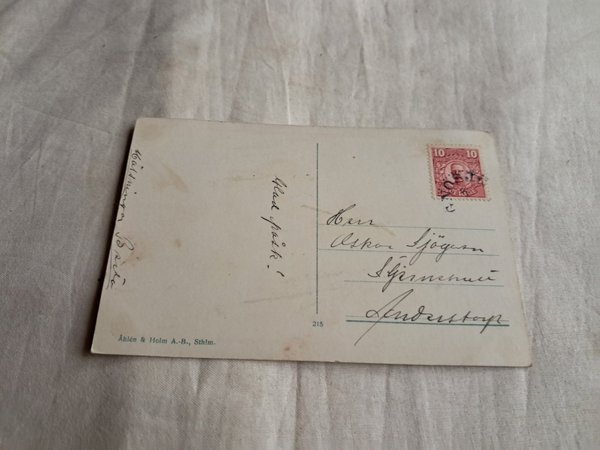 Hälsningar Brita
Glad påsk!
10 10
Herr
Oskar Sjögren
Anderstorp
215
Åhlén & Holm A.-B., Sthlm.